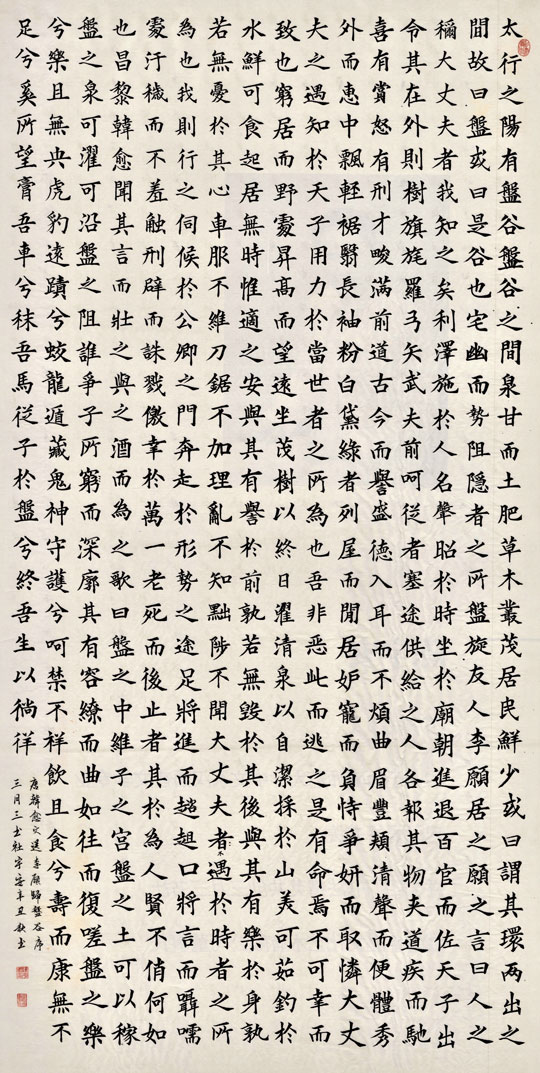 太行之陽有盤谷盤谷之間泉甘而土肥草木叢茂居民鮮少或曰謂其環兩出之
間故曰盤或曰是谷也宅幽而勢阻隱者之所盤旋友人李願居之願之言曰人之
稱大丈夫者我知之矣利澤施於人名聲昭於時坐於廟朝進退百官而佐天子出
令其在外則樹旗旄羅弓矢武夫前呵從者塞途供給之人各報其物夫道疾而馳
喜有賞怒有刑才畯滿前道古今而譽盛德入耳而不煩曲眉豐頰清聲而便體秀
外而惠中飄輕裾翳長袖粉白黛綠者列屋而閒居妒寵而負恃爭妍而取憐大丈
夫之遇知於天子用力於當世者之所為也吾非惡此而逃之是有命焉不可幸而
致也窮居而野處昇高而望遠坐茂樹以終日濯清泉以自潔採於山美可茹釣於
水鮮可食起居無時惟適之安與其有譽於前孰若無毀於其後與其有樂於身孰
若無憂於其心車服不維刀鋸不加理亂不知黜陟不聞大丈夫者遇於時者之所
為也我則行之伺候於公卿之門奔走於形勢之途足將進而趑趄口將言而囁嚅
處汙穢而不羞触刑辟而誅戮儌幸於萬一老死而後止者其於為人賢不俏何如
也昌黎韓愈聞其言而壯之與之酒而為之歌曰盤之中維子之宮盤之土可以稼
盤之泉可濯可沿盤之阻誰爭子所窮而深廓其有容繚而曲如往而復嗟盤之樂
兮樂且無央虎豹遠蹟兮蛟龍遁藏鬼神守護兮呵禁不祥飲且食兮壽而康無不
足兮奚所望膏吾車兮秣吾馬從子於盤兮終吾生以徜徉
唐韓愈文送李願歸盤谷序
三月三 辛丑秋書